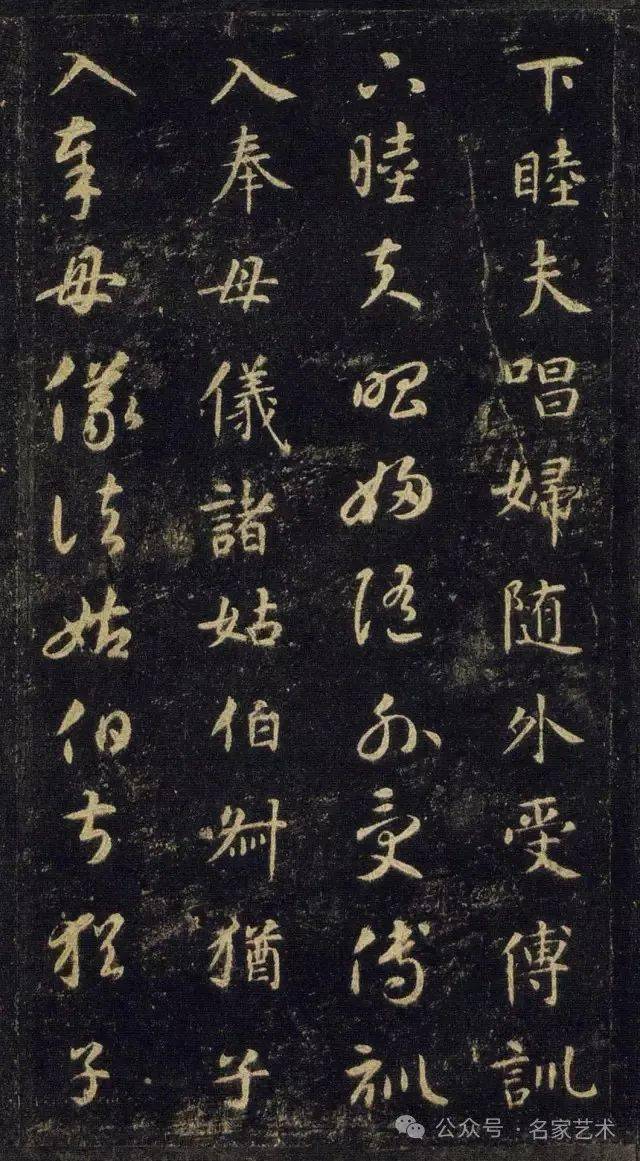 下睦夫唱婦随外受傅訓
下睦夫唱婦随外受傅訓
入奉母儀諸姑伯叔猶子
入奉母儀諸姑伯叔猶子
公众号·名家艺术